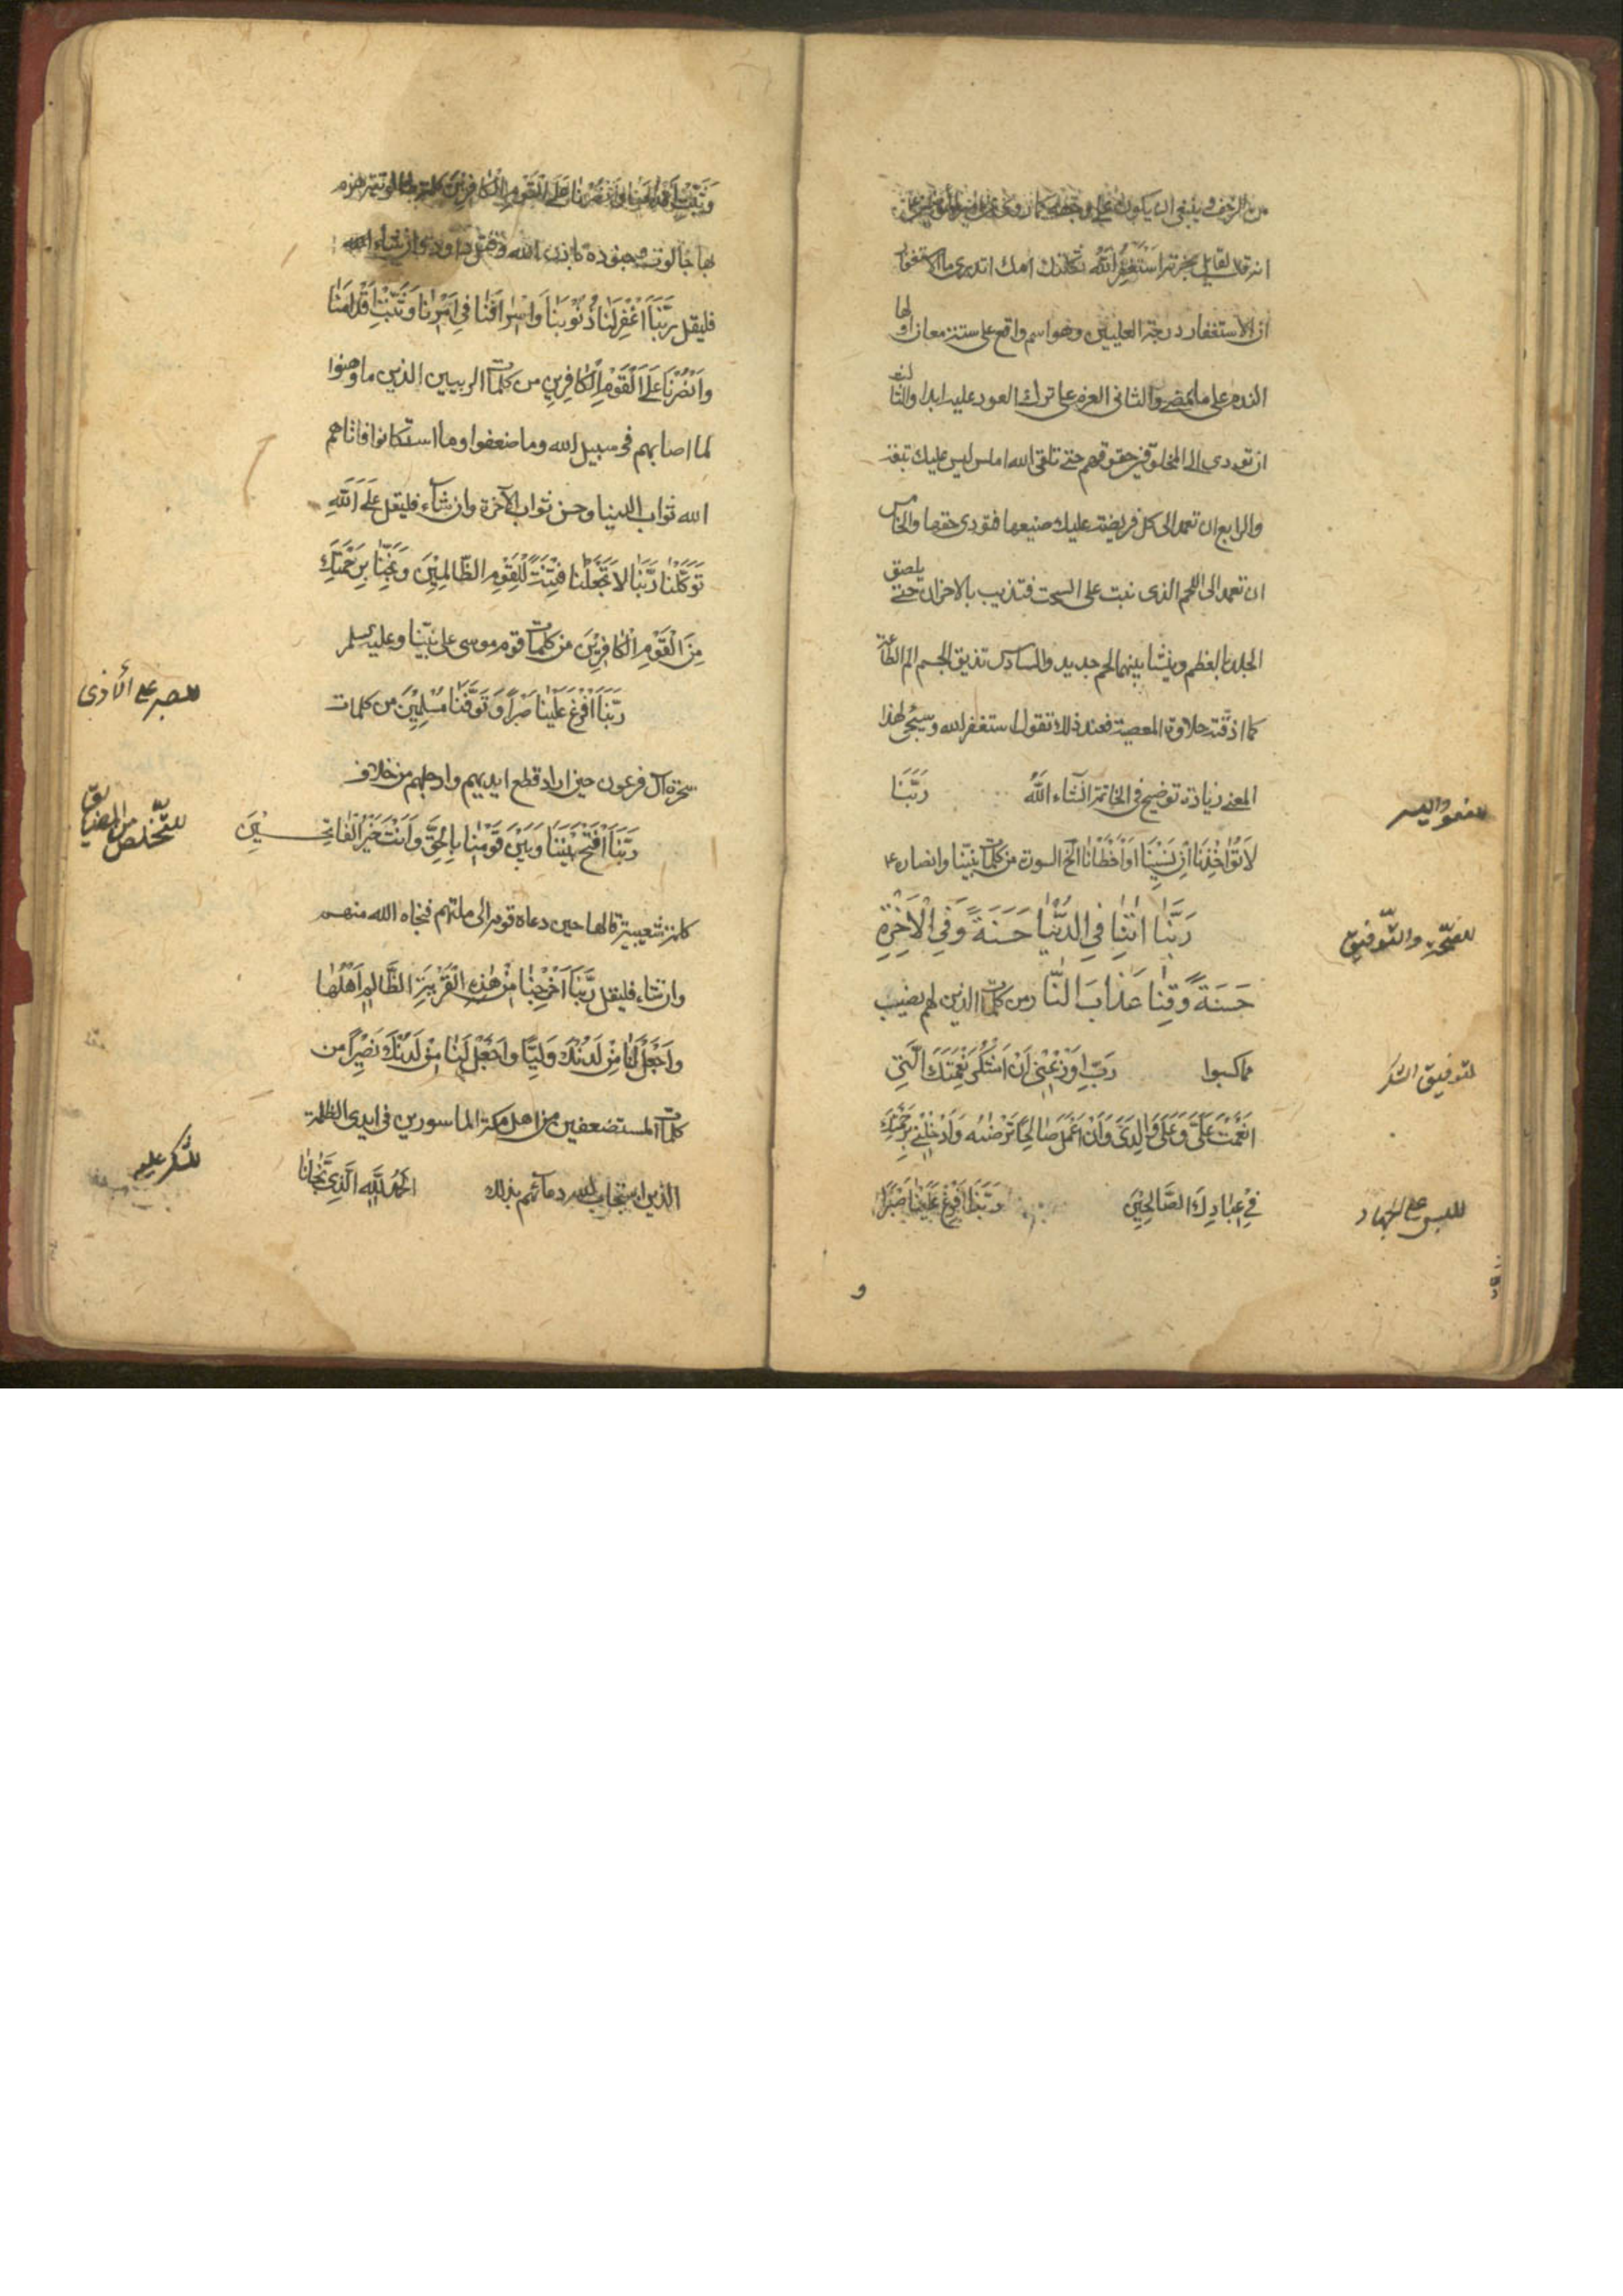 من الزحف وينبغي ان يكون
انه قال لقائل بحضرته استغفر الله ثكلتك امك اتدري ما الاستغفار
ان الاستغفار درجة العليين وهو اسم واقع على ستة معان اولها
الندم على ما مضى والثاني العزم على ترك العود عليه ابدا والثالث
ان تؤدي الى المخلوقين حقوقهم حتى تلقى الله املس ليس عليك تبعة
والرابع ان تعمد الى كل فريضة عليك ضيعتها فتؤدي حقها والخامس
ان تعمد الى اللحم الذي نبت على السحت فتذيبه بالاحزان حتى يلصق
الجلد بالعظم وينشا بينهما لحم جديد والسادس تذيق الجسم الم الطاعة
كما اذقته حلاوة المعصية فعند ذلك تقول استغفر الله وسيجئ لهذا
المعنى زيادة توضيح في الخاتمة انشاء الله رَبَّنَا
للعفو واليسر
لَا تُؤَاخِذْنَا اِنْ نَسِينَا اَوْ اَخْطَأْنَا الخ السورة من كلمات نبينا وانصاره
رَبَّنَا اٰتِنَا فِي الدُّنْيَا حَسَنَةً وَفِي الْاٰخِرَةِ
للصحة والتوفيق
حَسَنَةً وَقِنَا عَذَابَ النَّارِ من كلمات الذين لهم نصيب
مما كسبوا رَبِّ اَوْزِعْنِي اَنْ اَشْكُرَ نِعْمَتَكَ الَّتِي
لتوفيق الشكر
اَنْعَمْتَ عَلَيَّ وَعَلٰى وَالِدَيَّ وَاَنْ اَعْمَلَ صَالِحًا تَرْضٰيهُ وَاَدْخِلْنِي بِرَحْمَتِكَ
فِي عِبَادِكَ الصَّالِحِينَ رَبَّنَا اَفْرِغْ عَلَيْنَا صَبْرًا
على الجهاد
و
وَثَبِّتْ اَقْدَامَنَا وَانْصُرْنَا عَلَى الْقَوْمِ الْكَافِرِينَ
بها جالوت وجنوده باذن الله وقتل داود وان شاء
فليقل رَبَّنَا اغْفِرْ لَنَا ذُنُوبَنَا وَاِسْرَافَنَا فِي اَمْرِنَا وَثَبِّتْ اَقْدَامَنَا
وَانْصُرْنَا عَلَى الْقَوْمِ الْكَافِرِينَ من كلمات الربيين الذين ما وهنوا
لما اصابهم في سبيل الله وما ضعفوا وما استكانوا فاتاهم
الله ثواب الدنيا وحسن ثواب الآخرة وان شآء فليقل عَلَى اللّٰهِ
تَوَكَّلْنَا رَبَّنَا لَا تَجْعَلْنَا فِتْنَةً لِلْقَوْمِ الظَّالِمِينَ وَنَجِّنَا بِرَحْمَتِكَ
مِنَ الْقَوْمِ الْكَافِرِينَ من كلمات قوم موسى على نبينا وعليه السلم
رَبَّنَا اَفْرِغْ عَلَيْنَا صَبْرًا وَتَوَفَّنَا مُسْلِمِينَ من كلمات
للصبر على الأذى
سحرة آل فرعون حين اراد قطع ايديهم وارجلهم من خلاف
رَبَّنَا افْتَحْ بَيْنَنَا وَبَيْنَ قَوْمِنَا بِالْحَقِّ وَاَنْتَ خَيْرُ الْفَاتِحِينَ
للتخلص من المضايق
كلمة شعيبية قالها حين دعاه قومه الى ملتهم فنجاه الله منهم
وان شاء فليقل رَبَّنَا اَخْرِجْنَا مِنْ هٰذِهِ الْقَرْيَةِ الظَّالِمِ اَهْلُهَا
وَاجْعَلْ لَنَا مِنْ لَدُنْكَ وَلِيًّا وَاجْعَلْ لَنَا مِنْ لَدُنْكَ نَصِيرًا من
كلمات المستضعفين من اهل مكة الماسورين في ايدي الظلمة
الذين استجاب الله دعائهم بذلك اَلْحَمْدُ لِلّٰهِ الَّذِي نَجَّانَا
للشكر عليه